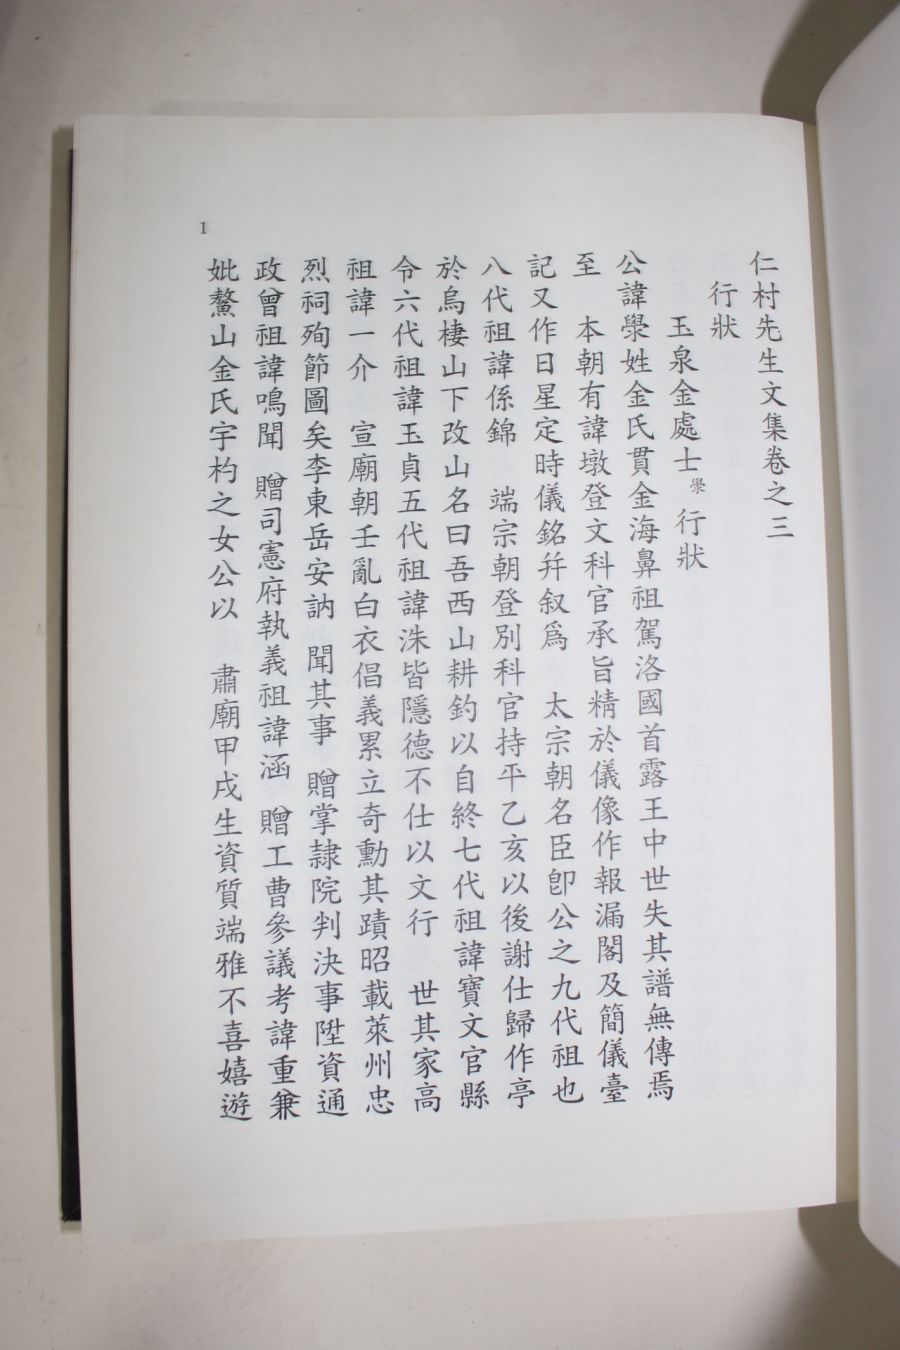 仁村先生文集卷之三
行狀
玉泉金處士㶅行狀
公諱㶅姓金氏貫金海鼻祖駕洛國首露王中世失其譜無傳焉
至 本朝有諱墩登文科官承旨精於儀像作報漏閣及簡儀臺
記又作日星定時儀銘幷叙爲 太宗朝名臣卽公之九代祖也
八代祖諱係錦 端宗朝登別科官持平乙亥以後謝仕歸作亭
於烏棲山下改山名曰吾西山耕釣以自終七代祖諱寶文官縣
令六代祖諱玉貞五代祖諱洙皆隱德不仕以文行 世其家高
祖諱一介 宣廟朝壬亂白衣倡義累立奇勳其蹟昭載萊州忠
烈祠殉節圖矣李東岳安訥 聞其事 贈掌隷院判決事陞資通
政曾祖諱鳴聞 贈司憲府執義祖諱涵 贈工曹參議考諱重兼
妣鰲山金氏宇杓之女公以 肅廟甲戌生資質端雅不喜嬉遊
1